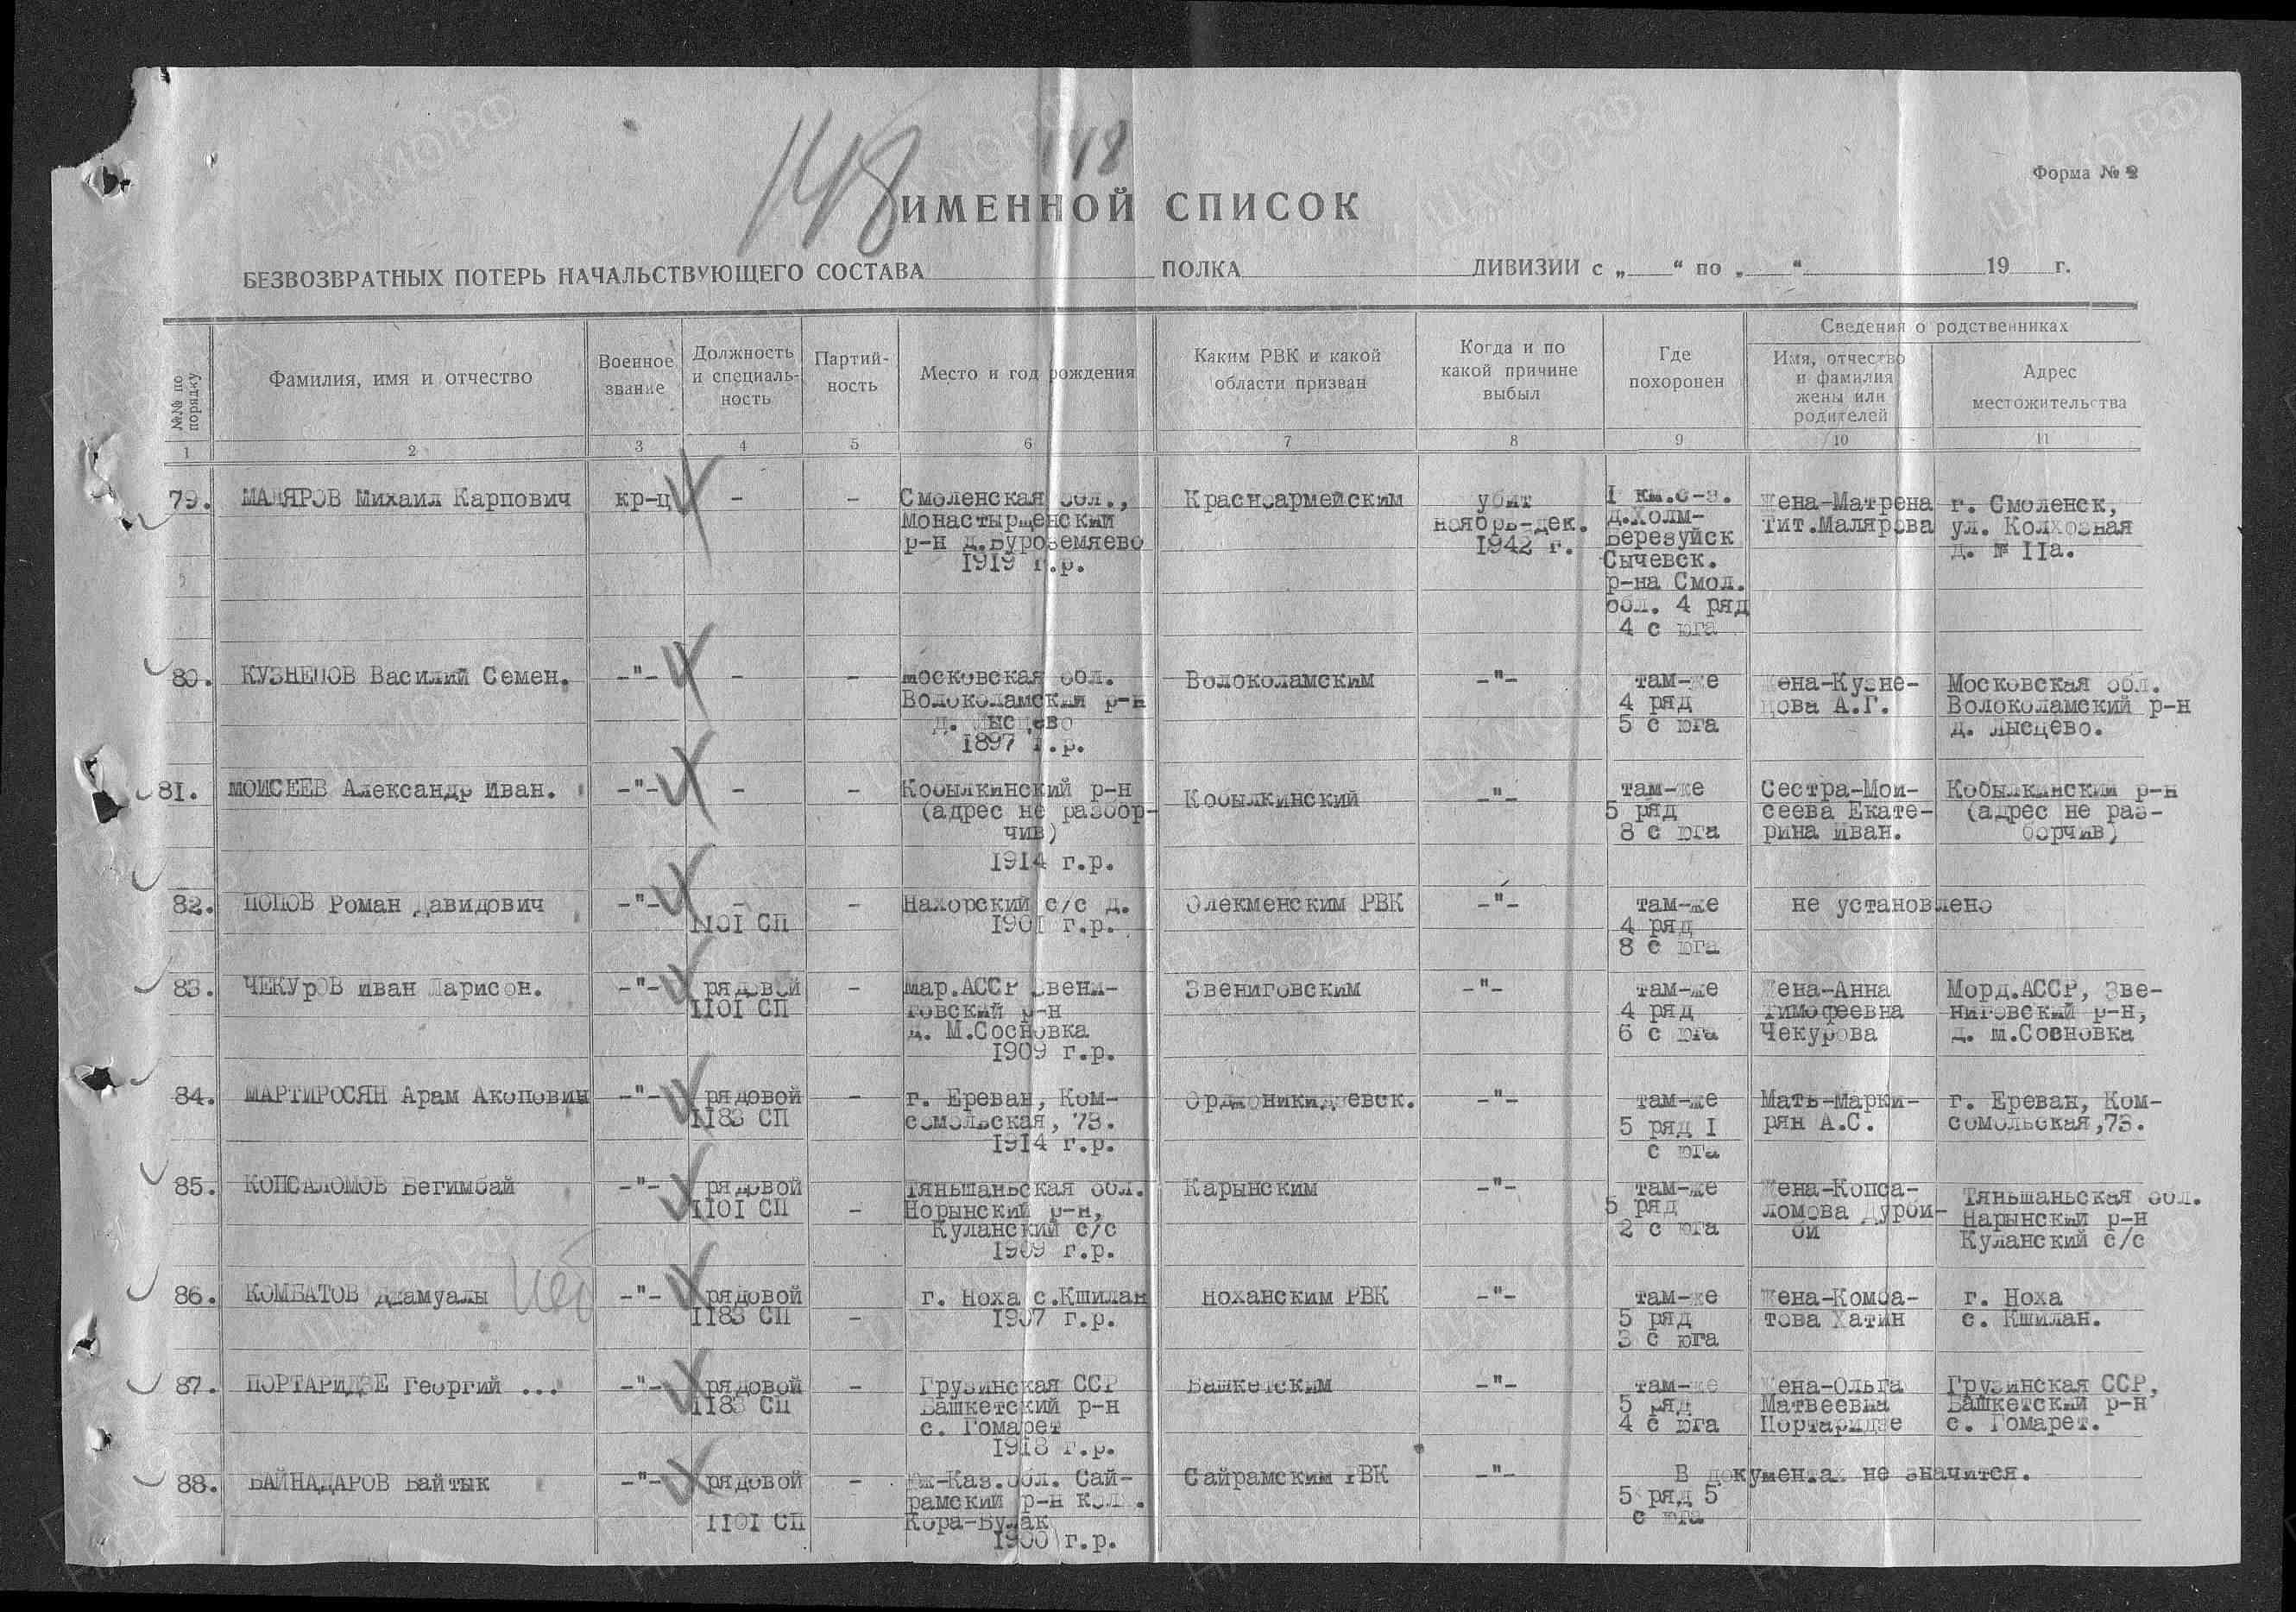 148
148
Форма № 2
ИМЕННОЙ СПИСОК
БЕЗВОЗВРАТНЫХ ПОТЕРЬ НАЧАЛЬСТВУЮЩЕГО СОСТАВА ПОЛКА ДИВИЗИИ с „ “ по „ “ 19 г.
№№ по порядку
Фамилия, имя и отчество
Военное
звание
Должность
и специаль-
ность
Партий-
ность
Место и год рождения
Каким РВК и какой
области призван
Когда и по
какой причине
выбыл
Где
похоронен
Сведения о родственниках
Имя, отчество
и фамилия
жены или
родителей
Адрес
местожительства
1 2 3 4 5 6 7 8 9 10 11
79. МАЛЯРОВ Михаил Карпович кр-ц - -
Смоленская обл.,
Монастырщенский
р-н д.Буроземяево
1919 г.р.
Красноармейским
убит
ноябрь-дек.
1942 г.
I км.с-з.
д.Холм-
Березуйск
Сычевск.
р-на Смол.
обл. 4 ряд
4 с юга
Жена-Матрена
Тит.Малярова
г. Смоленск,
ул. Колхозная
д. № IIа.
80. КУЗНЕЦОВ Василий Семен. -"- - -
Московская обл.
Волоколамский р-н
д. Лысцево
1897 г.р.
Волоколамским
-"-
там-же
4 ряд
5 с юга
Жена-Кузне-
цова А.Г.
Московская обл.
Волоколамский р-н
д. Лысцево.
81. МОИСЕЕВ Александр Иван. -"- - -
Кобылкинский р-н
(адрес не разбор-
чив)
1914 г.р.
Кобылкинский
-"-
там-же
5 ряд
8 с юга
Сестра-Мои-
сеева Екате-
рина Иван.
Кобылкинский р-н
(адрес не раз-
борчив)
82. ПОПОВ Роман Давидович -"- - -
1101 СП
Нахорский с/с д.
1901 г.р.
Олекменским РВК
-"-
там-же
4 ряд
8 с юга
не установлено
83. ЧЕКУРОВ Иван Ларисон. -"- рядовой -
1101 СП
Мар.АССР Звени-
говский р-н
д. М.Сосновка
1909 г.р.
Звениговским
-"-
там-же
4 ряд
6 с юга
Жена-Анна
Тимофеевна
Чекурова
Морд.АССР, Зве-
ниговский р-н,
д. М.Сосновка
84. МАРТИРОСЯН Арам Акопович -"- рядовой -
1183 СП
г. Ереван, Ком-
сомольская, 73.
1914 г.р.
Орджоникидзевск.
-"-
там-же
5 ряд I
с юга
Мать-Марки-
рян А.С.
г. Ереван, Ком-
сомольская,73.
85. КОПСАЛОМОВ Бегимбай -"- рядовой
1101 СП -
Тяньшаньская обл.
Норынский р-н,
Куланский с/с
1909 г.р.
Карынским
-"-
там-же
5 ряд
2 с юга
Жена-Копса-
ломова Дурби-
би
Тяньшаньская обл.
Нарынский р-н
Куланский с/с
86. КОМБАТОВ Джамуалы -"- рядовой
1183 СП -
г. Ноха с.Кшилан
1907 г.р.
Ноханским РВК
-"-
там-же
5 ряд
3 с юга
Жена-Комба-
това Хатин
г. Ноха
с. Кшилан.
87. ПОРТАРИДЗЕ Георгий ... -"- рядовой -
1183 СП
Грузинская ССР
Башкетский р-н
с. Гомарет
1918 г.р.
Башкетским
-"-
там-же
5 ряд
4 с юга
Жена-Ольга
Матвеевна
Портаридзе
Грузинская ССР,
Башкетский р-н
с. Гомарет.
88. БАЙНАДАРОВ Байтык -"- рядовой -
1101 СП
Юж-Каз.обл. Сай-
рамский р-н кол.
Кора-Булак
1900 г.р.
Сайрамским РВК
-"-
В документах не значится.
5 ряд 5
с юга